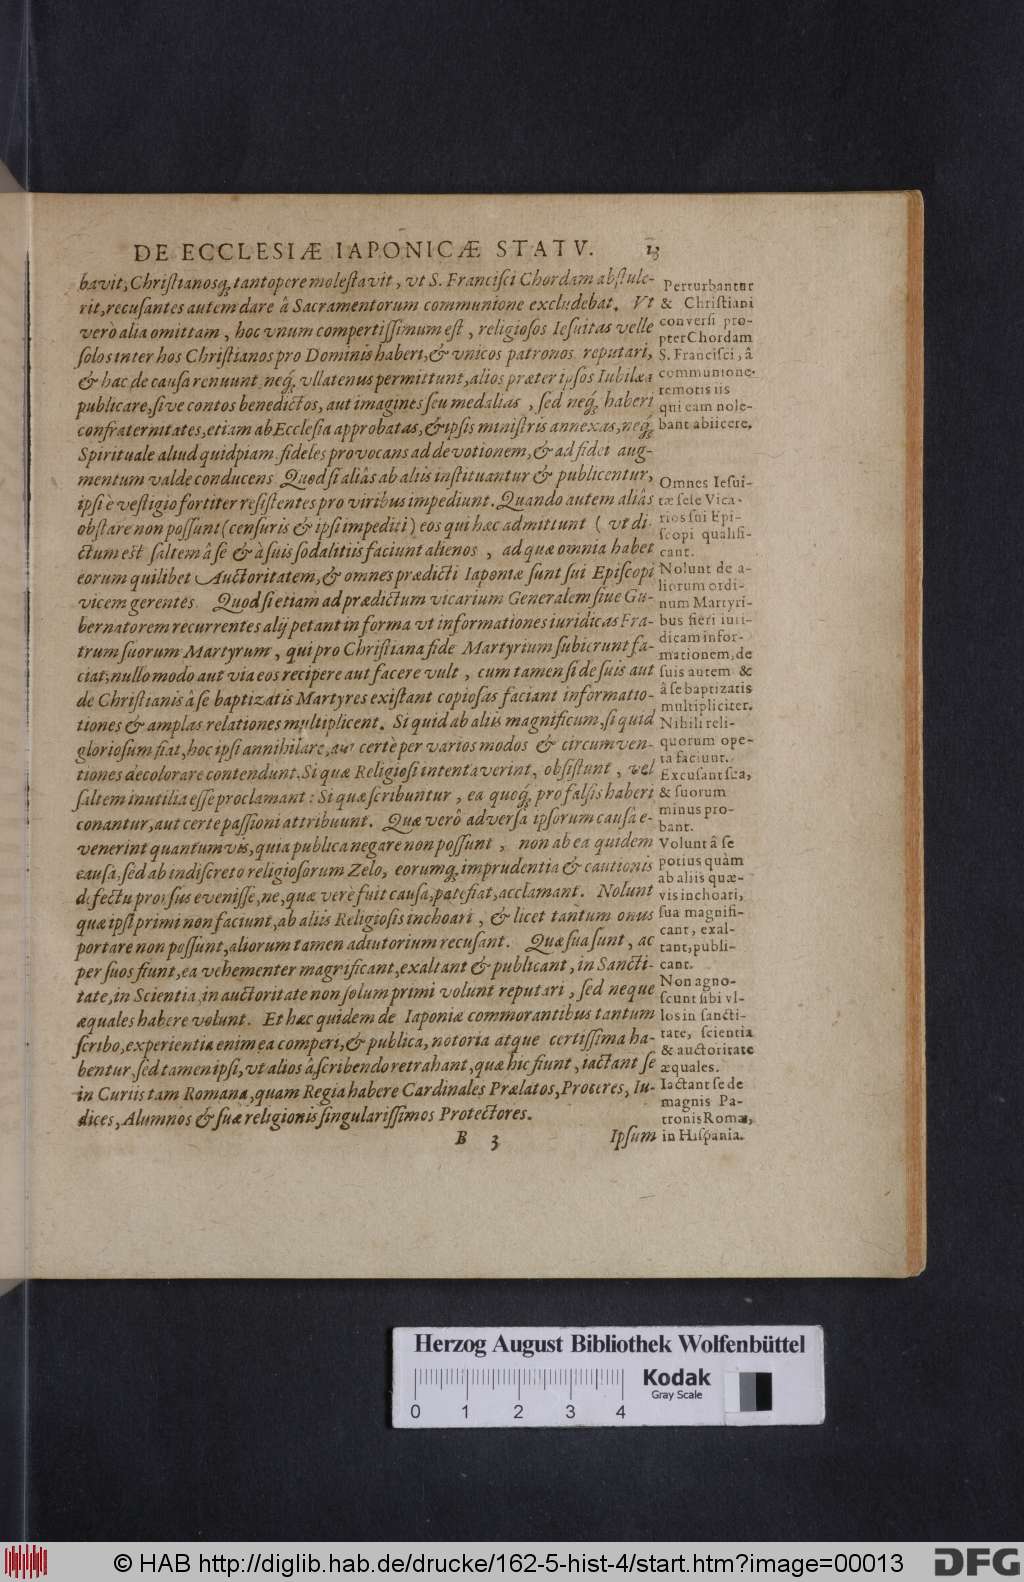 DE ECCLESIÆ IAPONICÆ STATV. 13
bavit, Christianosq; tantopere molestavit, vt S. Francisci Chordam abstule-
rit, recusantes autem dare â Sacramentorum communione excludebat. Vt
verò alia omittam, hoc vnum compertissimum est, religiosos Iesuitas velle
solos inter hos Christianos pro Dominis haberi, & vnicos patronos reputari,
& hac de causa renuunt neq; vllatenus permittunt, alios præter ipsos Iubilæa
publicare, sive contos benedictos, aut imagines seu medalias, sed neq; haberi
confraternitates, etiam ab Ecclesia approbatas, & ipsis ministris annexas, neq;
Spirituale aliud quidpiam fideles provocans ad devotionem, & ad fidei aug-
mentum valde conducens Quod si aliâs ab aliis instituantur & publicentur,
ipsi è vestigio fortiter resistentes pro viribus impediunt. Quando autem aliâs
obstare non possunt (censuris & ipsi impediti) eos qui hæc admittunt (vt di-
ctum est saltem â se & à suis sodalitiis faciunt alienos, ad quæ omnia habet
eorum quilibet Auctoritatem, & omnes prædicti Iaponiæ sunt sui Episcopi
vicem gerentes. Quod si etiam ad prædictum vicarium Generalem siue Gu-
bernatorem recurrentes alij petant in forma vt informationes iuridicas Fra-
trum suorum Martyrum, qui pro Christiana fide Martyrium subierunt fa-
ciat; nullo modo aut via eos recipere aut facere vult, cum tamen si de suis aut
de Christianis â se baptizatis Martyres existant copiosas faciant informatio-
tiones & amplas relationes multiplicent. Si quid ab aliis magnificum, si quid
gloriosum fiat, hoc ipsi annihilare, aut certè per varios modos & circumven-
tiones decolorare contendunt. Si quæ Religiosi intentaverint, obsistunt, vel
saltem inutilia esse proclamant: Si quæ scribuntur, ea quoq; pro falsis haberi
conantur, aut certe passioni attribuunt. Quæ verô adversa ipsorum causa e-
venerint quantumvis, quia publica negare non possunt, non ab ea quidem
causa, sed ab indiscreto religiosorum Zelo, eorumq; imprudentia & cautionis
defectu prorsus evenisse, ne, quæ verè fuit causa, patefiat, acclamant. Nolunt
quæ ipsi primi non faciunt, ab aliis Religiosis inchoari, & licet tantum onus
portare non possunt, aliorum tamen adiutorium recusant. Quæ sua sunt, ac
per suos fiunt, ea vehementer magrificant, exaltant & publicant, in Sancti-
tate, in Scientia, in auctoritate non solum primi volunt reputari, sed neque
æquales habere volunt. Et hæc quidem de Iaponiæ commorantibus tantum
scribo, experientia enim ea comperi, & publica, notoria atque certissima ha-
bentur, sed tamen ipsi, vt alios â scribendo retrahant, quæ hic fiunt, iactant se
in Curiis tam Romana, quam Regia habere Cardinales Prælatos, Proceres, Iu-
dices, Alumnos & suæ religionis singularissimos Protectores.
B 3 Ipsum
Perturbantur
& Christiani
conversi pro-
pter Chordam
S. Francisci, â
communione
remotis iis
qui eam nole-
bant abiicere.
Omnes Iesui-
tæ sese Vica-
rios sui Epi-
scopi qualifi-
cant.
Nolunt de a-
liorum ordi-
num Martyri-
bus fieri iuri-
dicam infor-
mationem, de
suis autem &
â se baptizatis
multipliciter.
Nihili reli-
quorum ope-
ra faciunt.
Excusant sea,
& suorum
minus pro-
bant.
Volunt â se
potius quàm
ab aliis quæ-
vis inchoari,
sua magnifi-
cant, exal-
tant, publi-
cant.
Non agno-
scunt sibi vl-
los in sancti-
tate, scientia
& auctoritate
æquales.
Iactant se de
magnis Pa-
tronis Romæ,
in Hispania.
Herzog August Bibliothek Wolfenbüttel
Kodak
Gray Scale
0 1 2 3 4
© HAB http://diglib.hab.de/drucke/162-5-hist-4/start.htm?image=00013
DFG